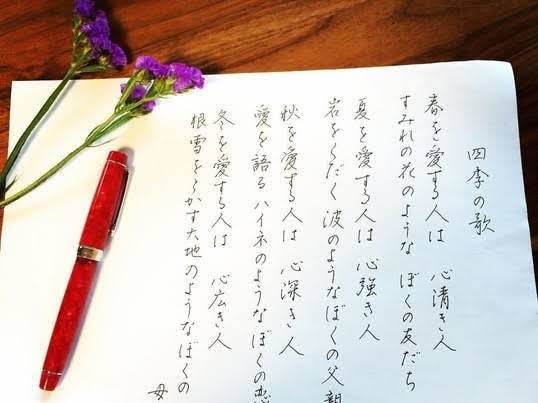 四季の歌
春を愛する人は 心清き人
すみれの花のような ぼくの友だち
夏を愛する人は 心強き人
岩をくだく 波のようなぼくの父親
秋を愛する人は 心深き人
愛を語る ハイネのようなぼくの恋
冬を愛する人は 心広き人
根雪をとかす大地のようなぼくの
母